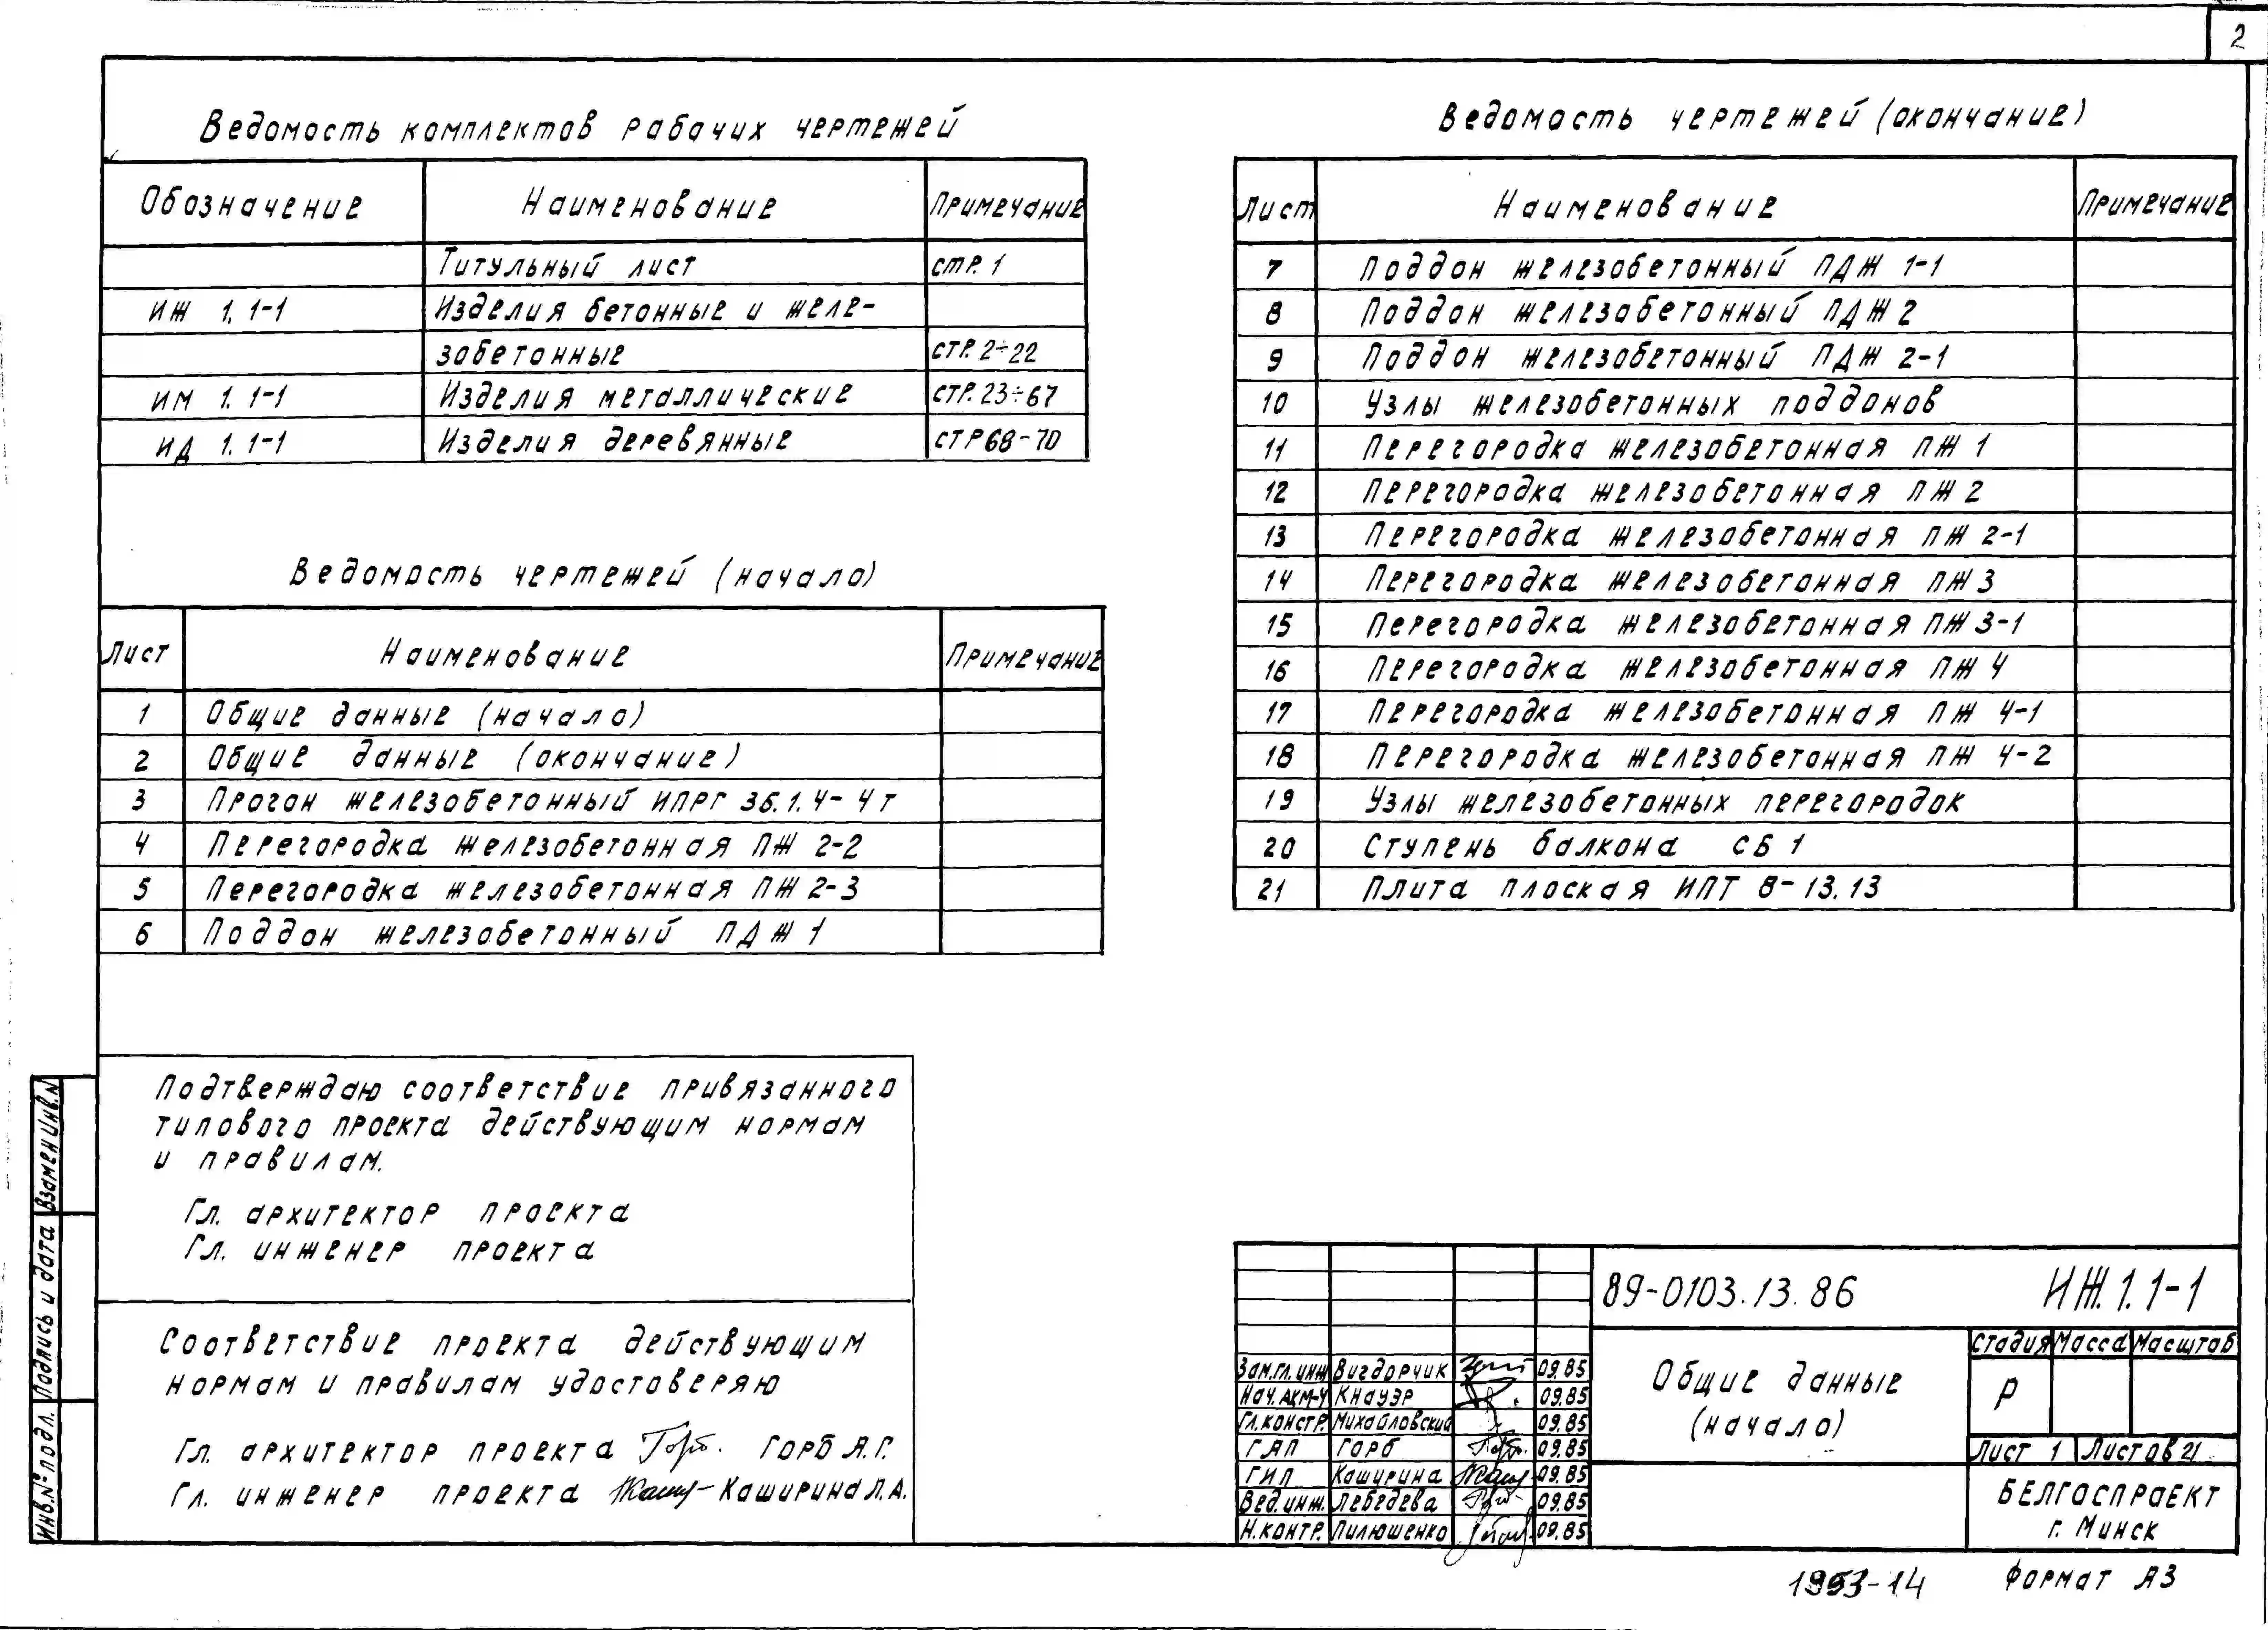 2
Ведомость комплектов рабочих чертежей
Обозначение Наименование Примечание
Титульный лист стр. 1
ИЖ 1.1-1 Изделия бетонные и желе-
зобетонные стр. 2÷22
ИМ 1.1-1 Изделия металлические стр. 23÷67
ИД 1.1-1 Изделия деревянные стр 68-70
Ведомость чертежей (начало)
Лист Наименование Примечание
1 Общие данные (начало)
2 Общие данные (окончание)
3 Прогон железобетонный ИПРГ 36.1.4-4т
4 Перегородка железобетонная ПЖ 2-2
5 Перегородка железобетонная ПЖ 2-3
6 Поддон железобетонный ПДЖ 1
Ведомость чертежей (окончание)
Лист Наименование Примечание
7 Поддон железобетонный ПДЖ 1-1
8 Поддон железобетонный ПДЖ 2
9 Поддон железобетонный ПДЖ 2-1
10 Узлы железобетонных поддонов
11 Перегородка железобетонная ПЖ 1
12 Перегородка железобетонная ПЖ 2
13 Перегородка железобетонная ПЖ 2-1
14 Перегородка железобетонная ПЖ 3
15 Перегородка железобетонная ПЖ 3-1
16 Перегородка железобетонная ПЖ 4
17 Перегородка железобетонная ПЖ 4-1
18 Перегородка железобетонная ПЖ 4-2
19 Узлы железобетонных перегородок
20 Ступень балкона СБ 1
21 Плита плоская ИПТ 8-13.13
Подтверждаю соответствие привязанного
типового проекта действующим нормам
и правилам.
Гл. архитектор проекта
Гл. инженер проекта
Соответствие проекта действующим
нормам и правилам удостоверяю
Гл. архитектор проекта Горб А.Г.
Гл. инженер проекта Каширина Л.А.
Инв.№ подл. Подпись и дата Взамен инв.N
89-0103.13.86 ИЖ.1.1-1
Зам.гл.инж Вигдорчик 09.85
Нач.АКМ-4 Кнауэр 09.85
Гл.констр. Михайловский 09.85
ГАП Горб 09.85
ГИП Каширина 09.85
Вед.инж. Лебедева 09.85
Н.контр. Пилюшенко 09.85
Общие данные
(начало)
Стадия Масса Масштаб
Р
Лист 1 Листов 21
БЕЛГОСПРОЕКТ
г. Минск
1953-14 Формат А3